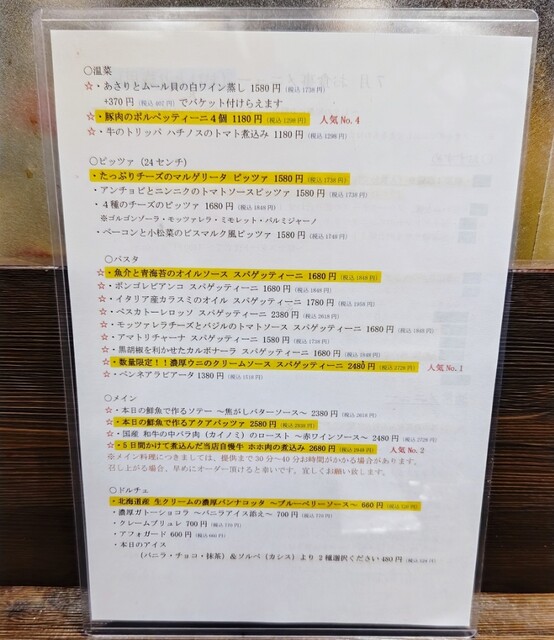 ○温菜
☆・あさりとムール貝の白ワイン蒸し 1580円(税込1738円)
+370円(税込407円)でバケット付けらえます
☆・豚肉のポルペッティーニ4個 1180円(税込1298円) 人気No.4
☆・牛のトリッパ ハチノスのトマト煮込み 1180円(税込1298円)
○ピッツァ(24センチ)
☆・たっぷりチーズのマルゲリータ ピッツァ 1580円(税込1738円)
・アンチョビとニンニクのトマトソースピッツァ 1580円(税込1738円)
・4種のチーズのピッツァ 1680円(税込1848円)
※ゴルゴンゾーラ・モッツァレラ・ミモレット・パルミジャーノ
・ベーコンと小松菜のビスマルク風ピッツァ 1580円(税込1748円)
○パスタ
☆・魚介と青海苔のオイルソース スパゲッティーニ 1680円(税込1848円)
☆・ボンゴレビアンコ スパゲッティーニ 1680円(税込1848円)
☆・イタリア産カラスミのオイル スパゲッティーニ 1780円(税込1958円)
☆・ペスカトーレロッソ スパゲッティーニ 2380円(税込2618円)
☆・モッツァレラチーズとバジルのトマトソース スパゲッティーニ 1680円(税込1848円)
☆・アマトリチャーナ スパゲッティーニ 1580円(税込1738円)
☆・黒胡椒を利かせたカルボナーラ スパゲッティーニ 1680円(税込1848円)
☆・数量限定!!濃厚ウニのクリームソース スパゲッティーニ 2480円(税込2728円) 人気No.1
☆・ペンネアラビアータ 1380円(税込1518円)
○メイン
☆・本日の鮮魚で作るソテー ～焦がしバターソース～ 2380円(税込2618円)
☆・本日の鮮魚で作るアクアパッツァ 2580円(税込2838円)
☆・国産 和牛の中バラ肉(カイノミ)のロースト ～赤ワインソース～ 2480円(税込2728円)
☆・5日間かけて煮込んだ当店自慢牛 ホホ肉の煮込み 2680円(税込2948円) 人気No.2
※メイン料理につきましては、提供まで30分～40分お時間がかかる場合があります。
召し上がる場合、早めにオーダー頂けると幸いです。宜しくお願い致します。
○ドルチェ
・北海道産 生クリームの濃厚パンナコッタ ～ブルーベリーソース～ 660円
・濃厚ガトーショコラ ～バニラアイス添え～ 700円(税込770円)
・クレームブリュレ 700円(税込770円)
・アフォガード 600円(税込660円)
・本日のアイス
(バニラ・チョコ・抹茶)&ソルベ(カシス)より2種選択ください 480円(税込528円)